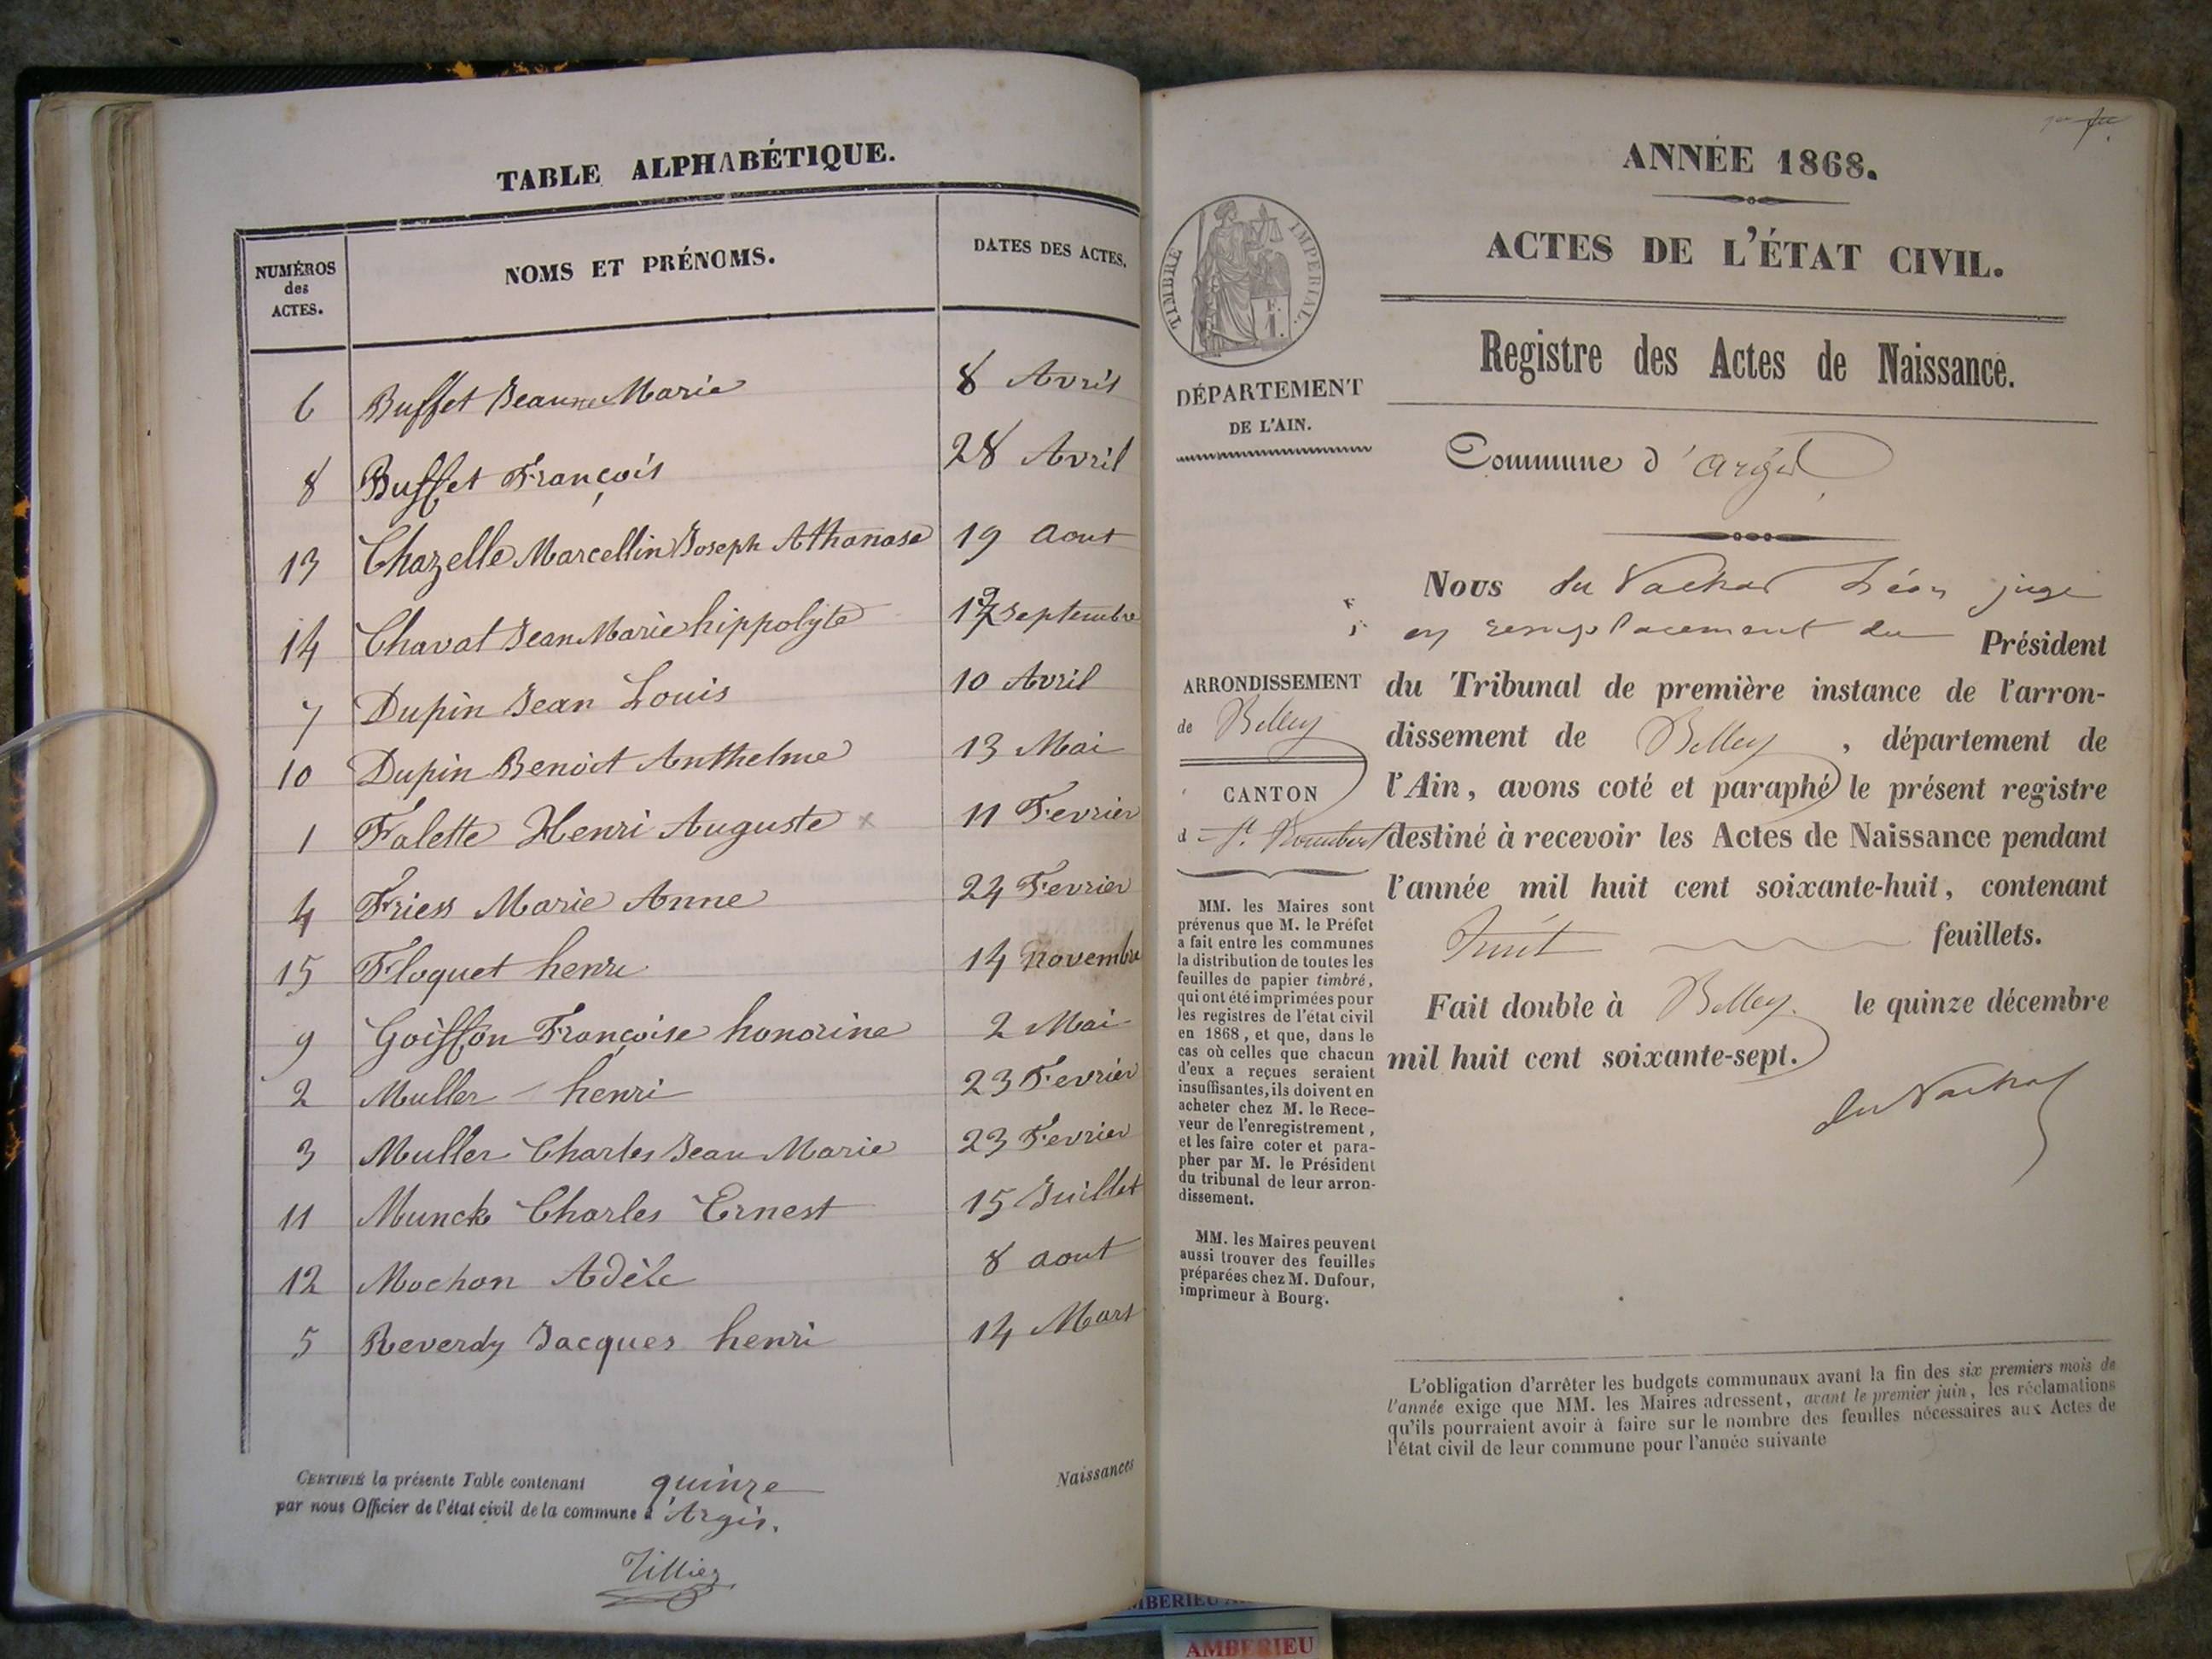 TABLE ALPHABÉTIQUE.
NUMÉROS des ACTES. NOMS ET PRÉNOMS. DATES DES ACTES.
6 Buffet Jeanne Marie 8 Avril
8 Buffet François 28 Avril
13 Chazelle Marcellin Joseph Athanase 19 Aout
14 Chavat Jean Marie hippolyte Septembre
7 Dupin Jean Louis 10 Avril
10 Dupin Benoit Anthelme 13 Mai
1 Falette Henri Auguste x 11 Fevrier
4 Friess Marie Anne 24 Fevrier
15 Floquet henri 14 Novembre
9 Goiffon Françoise honorine 2 Mai
2 Muller henri 23 Fevrier
3 Muller Charles Jean Marie 23 Fevrier
11 Munck Charles Ernest 15 Juillet
12 Mochon Adèle 8 aout
5 Reverdy Jacques henri 14 Mars
CERTIFIÉ la présente Table contenant quinze
par nous Officier de l'état civil de la commune d'Argis.
Naissances
Tillier
ANNÉE 1868.
ACTES DE L'ÉTAT CIVIL.
TIMBRE IMPÉRIAL.
Registre des Actes de Naissance.
DÉPARTEMENT
DE L'AIN.
Commune d'Argis
Nous du Vachat Léon juge
en remplacement du Président
du Tribunal de première instance de l'arron-
dissement de Belley, département de
l'Ain, avons coté et paraphé le présent registre
destiné à recevoir les Actes de Naissance pendant
l'année mil huit cent soixante-huit, contenant
huit feuillets.
Fait double à Belley. le quinze décembre
mil huit cent soixante-sept.
du Vachat
ARRONDISSEMENT
de Belley
CANTON
d St. Rambert
MM. les Maires sont
prévenus que M. le Préfet
a fait entre les communes
la distribution de toutes les
feuilles de papier timbré,
qui ont été imprimées pour
les registres de l'état civil
en 1868, et que, dans le
cas où celles que chacun
d'eux a reçues seraient
insuffisantes, ils doivent en
acheter chez M. le Rece-
veur de l'enregistrement,
et les faire coter et para-
pher par M. le Président
du tribunal de leur arron-
dissement.
MM. les Maires peuvent
aussi trouver des feuilles
préparées chez M. Dufour,
imprimeur à Bourg.
L'obligation d'arrêter les budgets communaux avant la fin des six premiers mois de
l'année exige que MM. les Maires adressent, avant le premier juin, les réclamations
qu'ils pourraient avoir à faire sur le nombre des feuilles nécessaires aux Actes de
l'état civil de leur commune pour l'année suivante
AMBERIEU